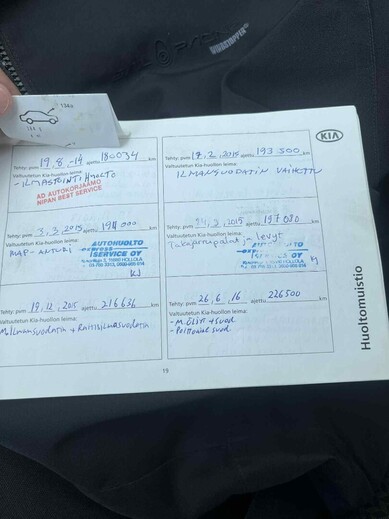 WINDSTOPPER
KIA
Tehty: pvm 19.8.-14 ajettu 180034 km
Valtuutetun Kia-huollon leima:
-ILMASTOINTI HUOLTO
AD AUTOKORJAAMO
NIPAN BEST SERVICE
Tehty: pvm 17.2.2015 ajettu 193 500 km
Valtuutetun Kia-huollon leima:
ILMANSUODATIN VAIHETTU
Tehty: pvm 3.3.2015 ajettu 194 000 km
Valtuutetun Kia-huollon leima:
MAP-ANTURI
AUTOHUOLTO
express
ISERVICE OY
KJ
Tehty: pvm 24.3.2015 ajettu 197080 km
Valtuutetun Kia-huollon leima:
Takajarrupalat, -levyt
AUTOHUOLTO
ISERVICE OY
KJ
Tehty: pvm 19.12.2015 ajettu 216636 km
Valtuutetun Kia-huollon leima:
M.Ilmansuodatin + Raitisilmasuodatin
Tehty: pvm 26.6.16 ajettu 226500 km
Valtuutetun Kia-huollon leima:
-M.Öljy +suod.
19
Huoltomuistio